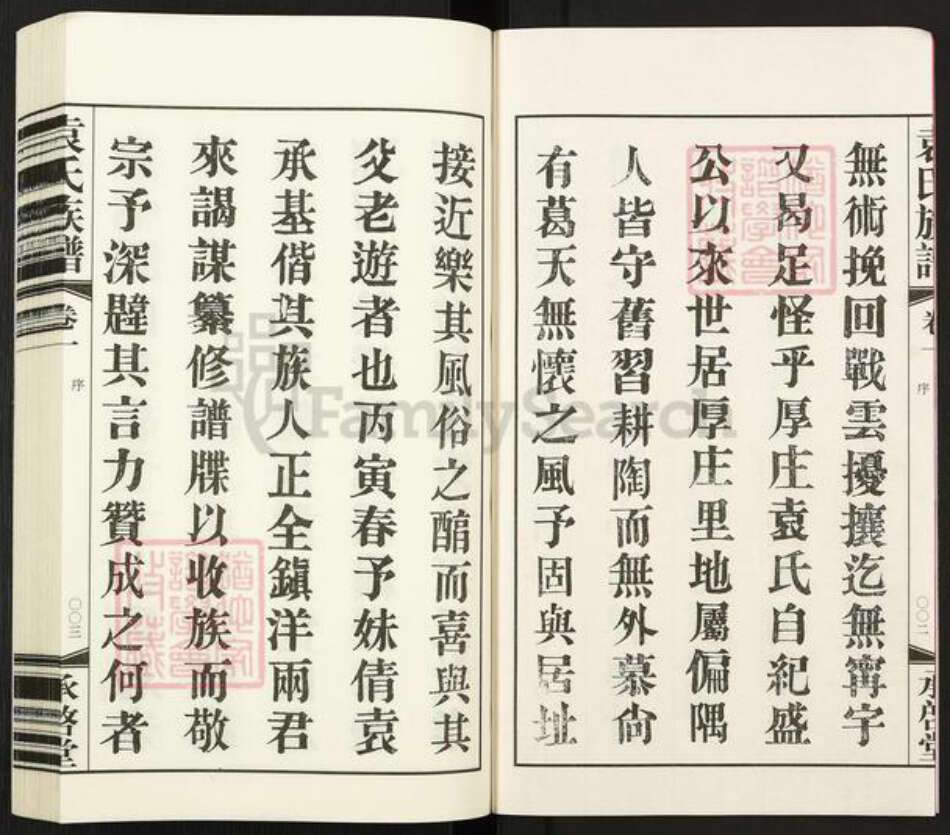 袁氏族譜
卷一
序
〇〇二
承啓堂
無術挽回戰雲擾攘迄無寧宇
又曷足怪乎厚庄袁氏自紀盛
公以來世居厚庄里地屬偏隅
人皆守舊習耕陶而無外慕尙
有葛天無懷之風予固與居址
接近樂其風俗之醕而喜與其
父老遊者也丙寅春予妹倩袁
承基偕其族人正全鎭洋兩君
來謁謀纂修譜牒以收族而敬
宗予深韙其言力贊成之何者
袁氏族譜
卷一
序
〇〇三
承啓堂
FamilySearch